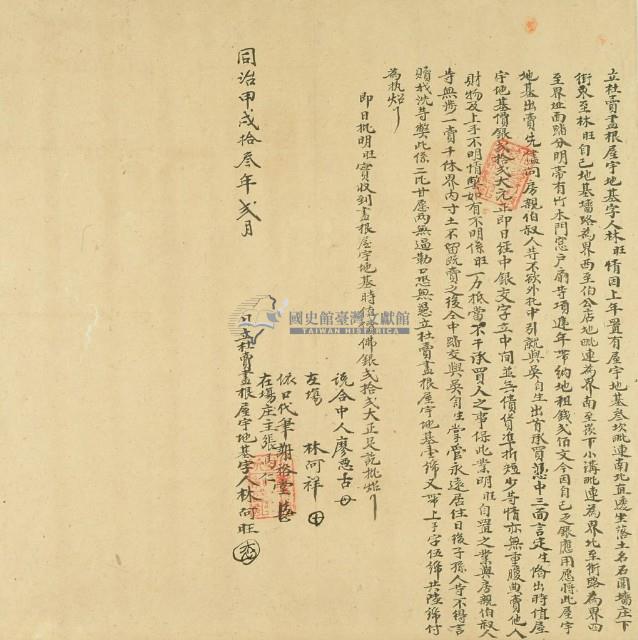 立杜賣盡根屋宇地基字人林旺情因上年置有屋宇地基叁坎毗連南北直透坐落土名石圍墻庄下
街東至林旺自己地基墻路為界西至伯公店地毗連為界南至崁下小溝毗連為界北至街路為界四
至界址面踏分明帶有竹木門窓戶扇等項逐年帶納地租錢弍佰文今因自己乏銀應用愿將此屋宇
地基出賣先儘問房親伯叔人等不欲外托中引就與吳自生出首承買憑中三面言定生偹出時值屋
宇地基價銀弍拾弍大元正即日經中銀交字立中間並無債貨準折短少等情亦無重腹典賣他人
財物及上手不明情弊如有不明係旺一力抵當不干承買人之事保此業明旺自置之業與房親伯叔人
等無涉一賣千休界內寸土不留既賣之後仝中踏交與吳自生掌管永遠居住日後子孫人等不得言
贖找洗等弊此係二比甘愿兩無逼勒口恐無憑立杜賣盡根屋宇地基壹紙又帶上手字伍紙共陸紙付
為执炤
即日批明旺實收到盡根屋宇地基時值佛銀弍拾弍大正足訖批炤
說合中人廖思古
在塲 林阿祥
依口代筆
在塲庄主張馬仁
日立杜賣盡根屋宇地基字人林阿旺
同治甲戌拾叁年弍月
國史館臺灣文獻館
TAIWAN HISTORICA